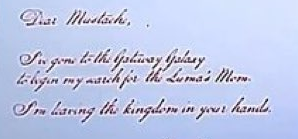 Dear Mustache,
I've gone to the Gateway Galaxy
to begin my search for the Luma's Mom.
I'm leaving the kingdom in your hands.